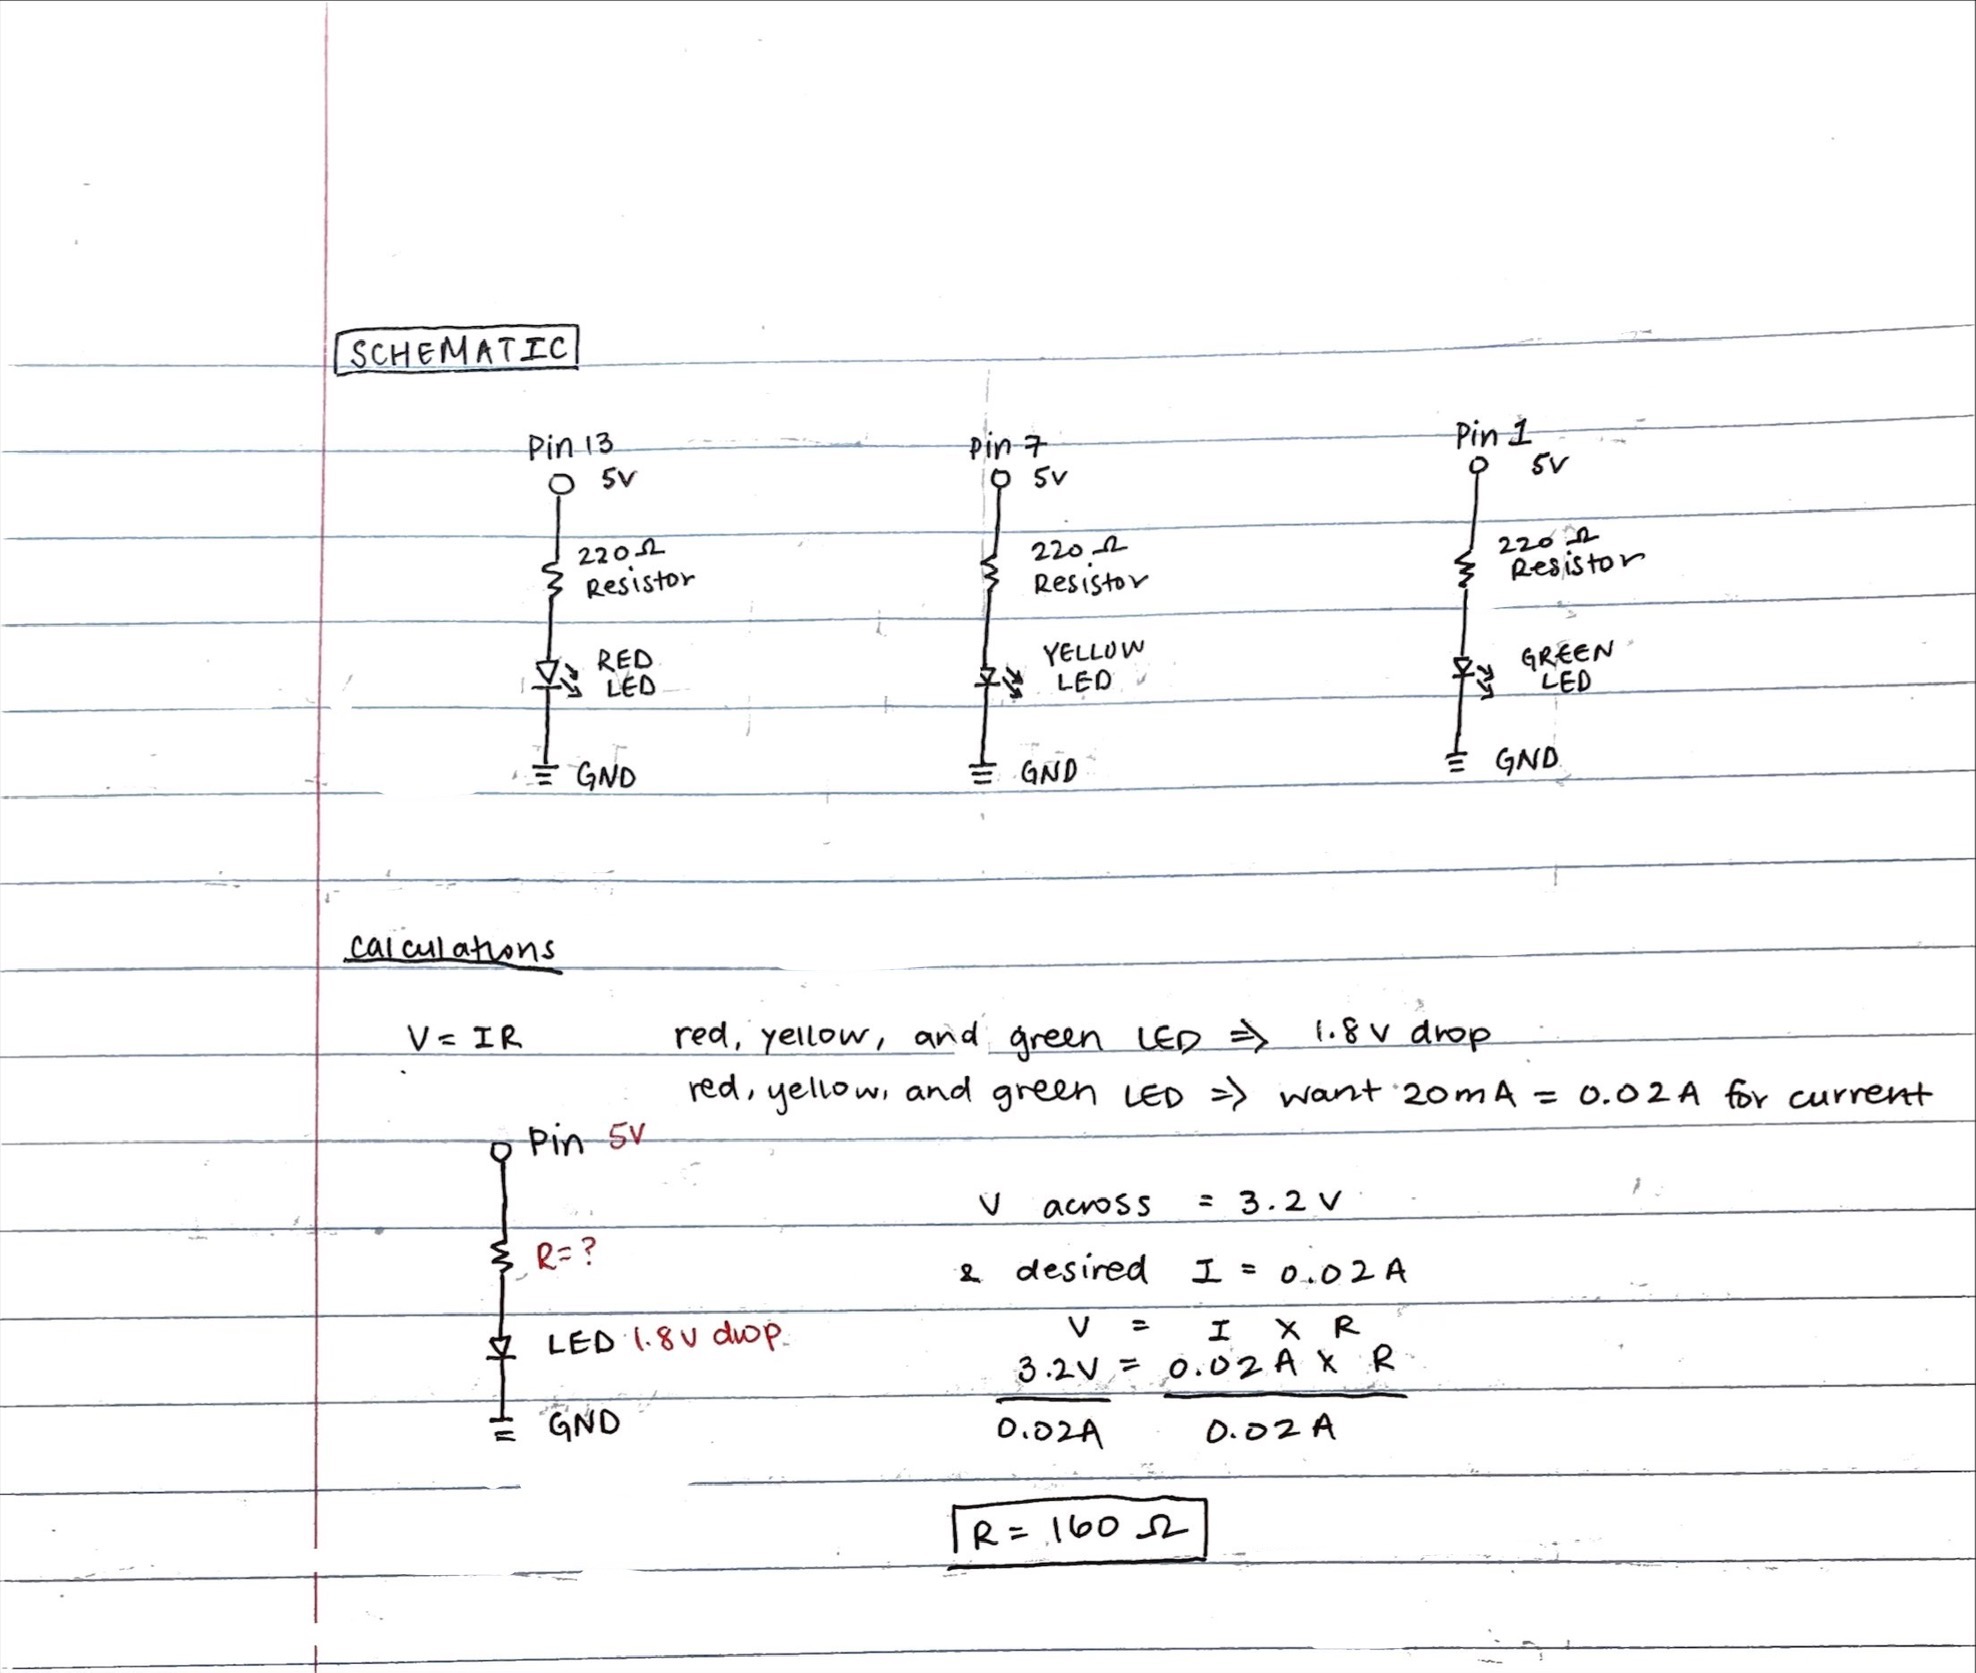 SCHEMATIC
Pin 13
5V
220Ω
Resistor
RED
LED
GND
Pin 7
5V
220Ω
Resistor
YELLOW
LED
GND
Pin 1
5V
220Ω
Resistor
GREEN
LED
GND
Calculations
V = IR
red, yellow, and green LED ⇒ 1.8V drop
red, yellow, and green LED ⇒ want 20mA = 0.02A for current
Pin 5V
R=?
LED 1.8V drop
GND
V across = 3.2V
& desired I = 0.02A
V = I X R
3.2V = 0.02A X R
0.02A 0.02A
R = 160 Ω